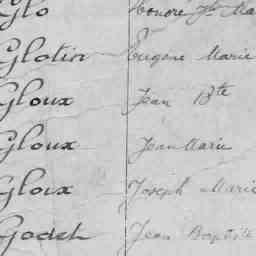 Glo Honoré Jh Ma
Glotin Eugène Marie
Gloux Jean Bte
Gloux Jean Marie
Gloux Joseph Marie
Godet Jean Baptiste